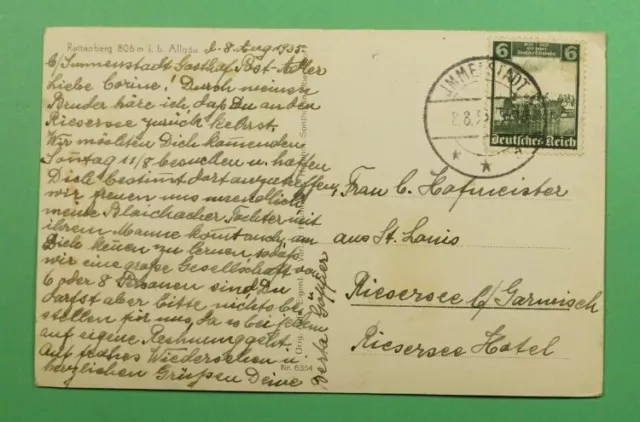 Rettenberg 806 m i. b. Allgäu d. 8 Aug. 1935.
b/Immenstadt Gasthof Post-Adler
Liebe Corine! Durch meinen
Bruder höre ich, daß Du an den
Riesersee zurück kehrst.
Wir möchten Dich kommenden
Sonntag 11/8 besuchen u. hoffen
Dich bestimmt dort anzutreffen,
wir freuen uns unendlich
meine Blaichacher Tochter mit
ihrem Manne kommt auch, um
Dich kennen zu lernen, sodaß
wir eine große Gesellschaft von
6 oder 8 Personen sind. Du
darfst aber bitte nichts be
stellen für uns, da es bei jedem
auf eigene Rechnung geht.
Auf frohes Wiedersehen u.
herzlichen Grüßen Deine
Nr. 6354
6 6
Deutsches Reich
IMMENSTADT
8.8.35
Frau C. Hofmeister
aus St. Louis
Riesersee b/Garmisch
Riesersee Hotel